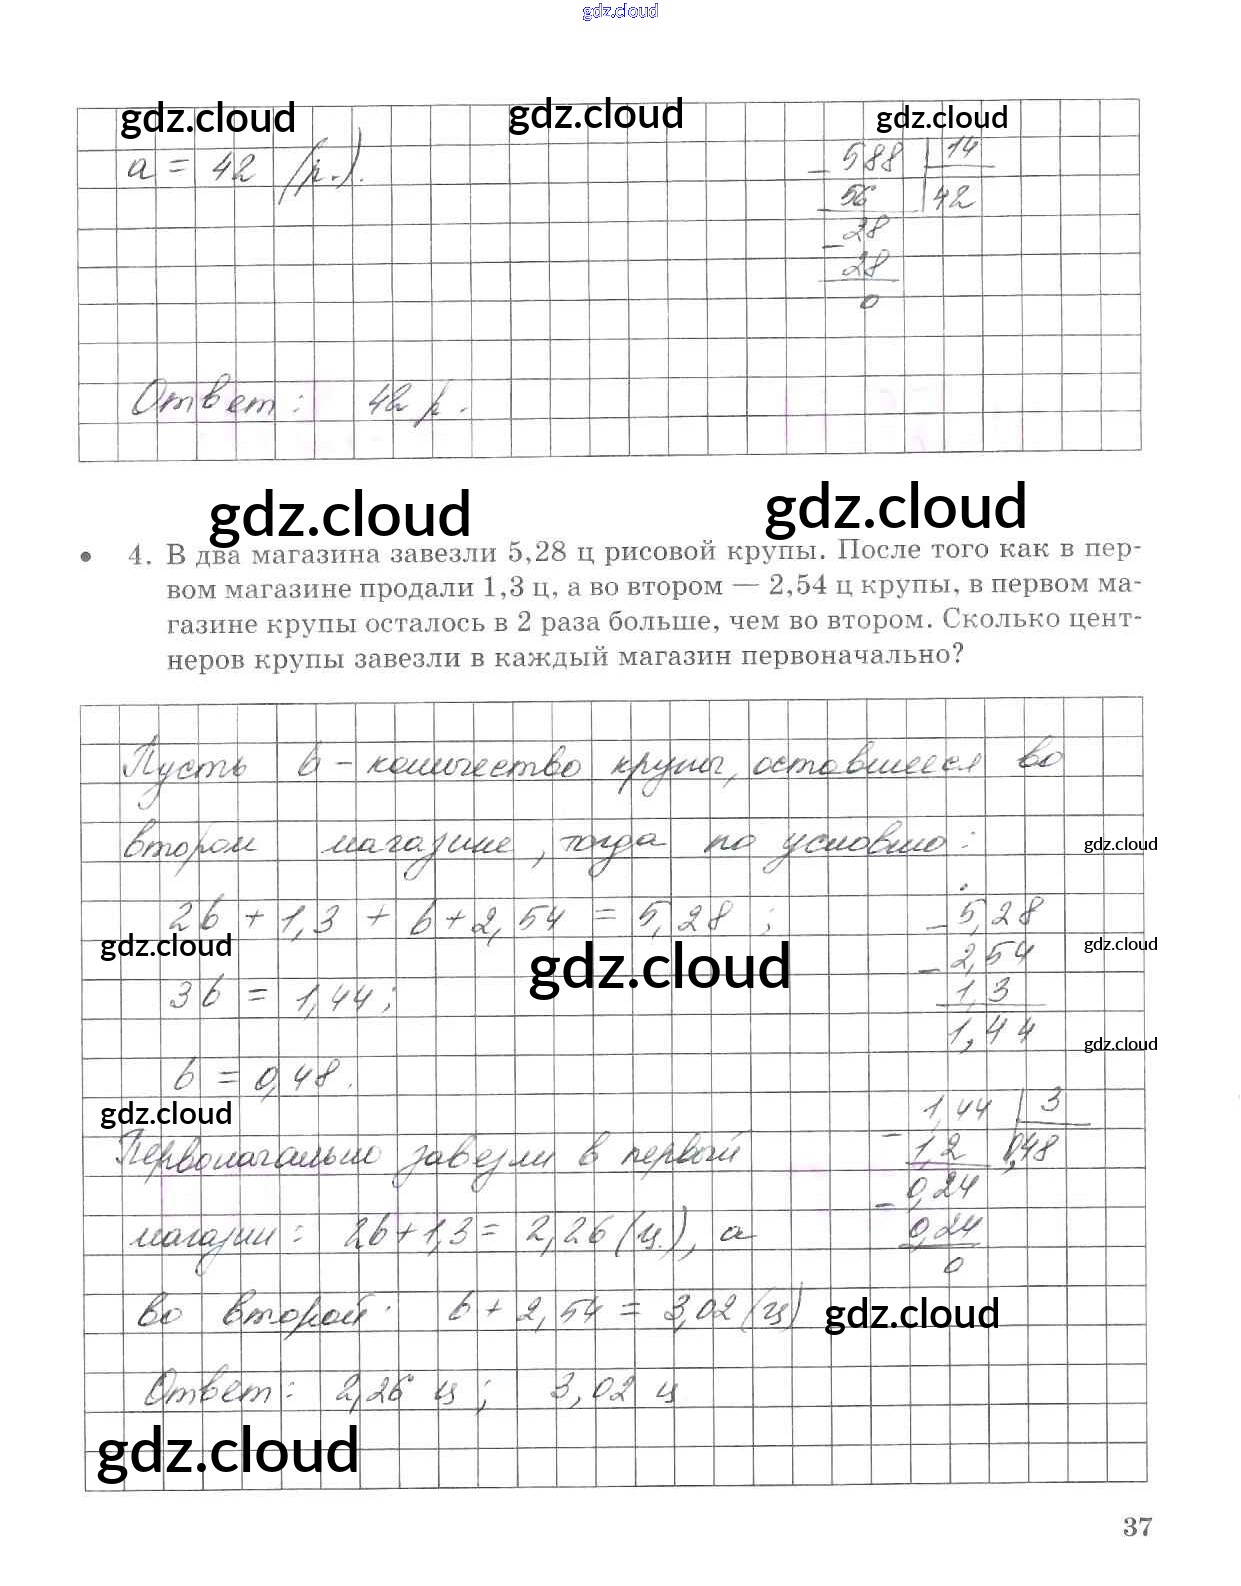 gdz.cloud
gdz.cloud gdz.cloud gdz.cloud
a = 42 (р.).
588 | 14
56 | 42
28
28
0
Ответ: 42 р.
gdz.cloud gdz.cloud
• 4. В два магазина завезли 5,28 ц рисовой крупы. После того как в пер-
вом магазине продали 1,3 ц, а во втором — 2,54 ц крупы, в первом ма-
газине крупы осталось в 2 раза больше, чем во втором. Сколько цент-
неров крупы завезли в каждый магазин первоначально?
Пусть b - количество крупы, оставшееся во
втором магазине, тогда по условию:
gdz.cloud
2b + 1,3 + b + 2,54 = 5,28 ;
- 5,28
gdz.cloud gdz.cloud gdz.cloud
- 2,54
3b = 1,44 ;
1,3
1,44
gdz.cloud
b = 0,48.
gdz.cloud
1,44 | 3
- 1,2 0,48
Первоначально завезли в первый
- 0,24
магазин: 2b + 1,3 = 2,26 (ц.), а
0,24
0
во второй: b + 2,54 = 3,02 (ц)
gdz.cloud
Ответ: 2,26 ц ; 3,02 ц
gdz.cloud
37